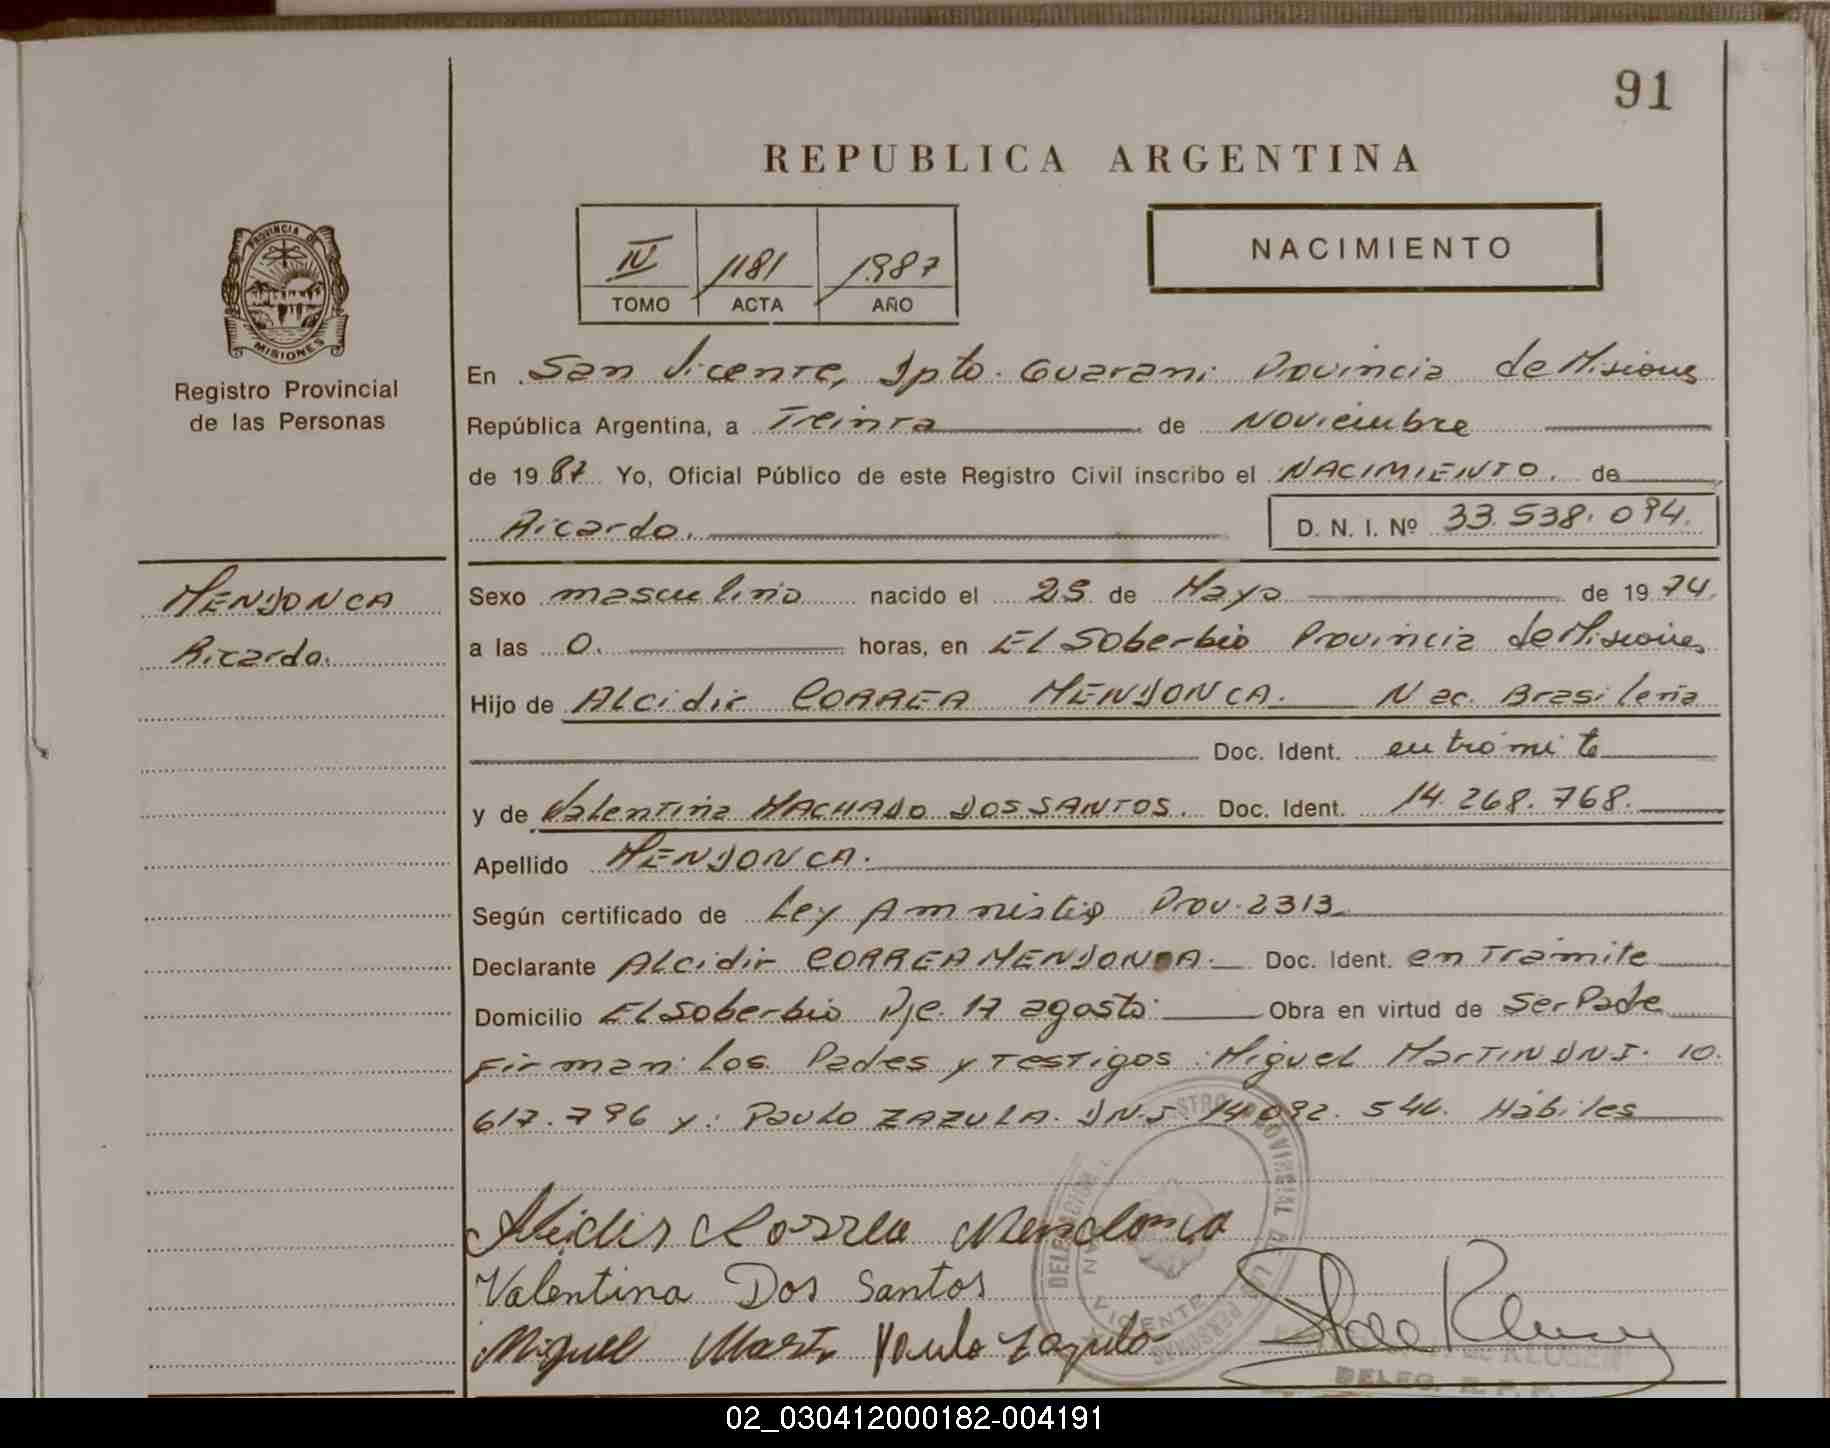 91
REPUBLICA ARGENTINA
IV 1181 1987
TOMO ACTA AÑO
NACIMIENTO
PROVINCIA DE
MISIONES
Registro Provincial
de las Personas
En San Vicente, Dpto. Guarani Provincia de Misiones
República Argentina, a Treinta de Noviembre
de 1987 Yo, Oficial Público de este Registro Civil inscribo el NACIMIENTO. de
Ricardo. D. N. I. Nº 33.538.094.
MENDONCA
Ricardo.
Sexo masculino nacido el 25 de Mayo de 1974.
a las 0. horas, en El Soberbio Provincia de Misiones
Hijo de Alcidir CORREA MENDONCA. Nac. Brasileña
Doc. Ident. en trámite
y de Valentina MACHADO DOS SANTOS. Doc. Ident. 14.268.768.
Apellido MENDONCA.
Según certificado de Ley Amnistia Prov. 2313
Declarante Alcidir CORREA MENDONCA. Doc. Ident. en Trámite
Domicilio El Soberbio Pje. 17 agosto Obra en virtud de Ser Padre
Firman: los Padres y Testigos: Miguel Martin DNI. 10.
617.796 y: Paulo ZAZULA. DNI. 14.092.546. Hábiles
Alcidir Correa Mendonca
Valentina Dos Santos
Miguel Martin Paulo Zazula
DELEGACION
VICENTE
DELEG. R. P. P.
02_030412000182-004191